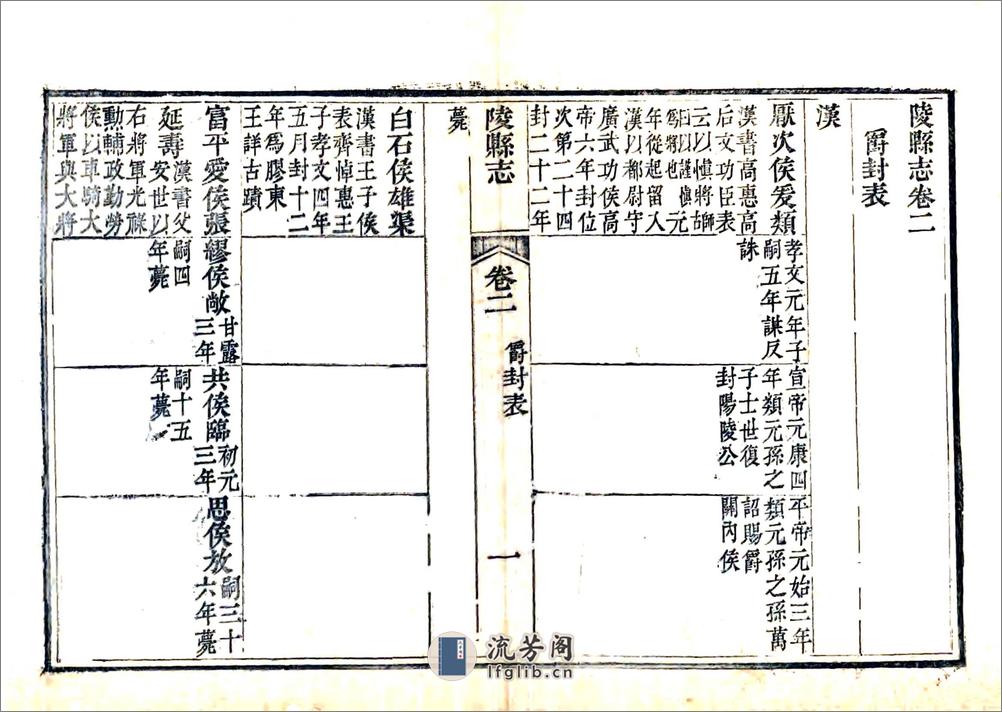 陵縣志卷二
爵封表
漢
厭次侯爰類
漢書高惠高
后文功臣表
云以慎將師
曰以謹慎元
為將也元
年從起留入
漢以都尉守
廣武功侯高
帝六年封位
次第二十四
封二十二年
孝文元年子
嗣五年謀反
誅
宣帝元康四
年類元孫之
子士世復
封陽陵公
平帝元始三年
類元孫之孫萬
詔賜爵
關內侯
陵縣志
卷二
爵封表
一
薨
白石侯雄渠
漢書王子侯
表齊悼惠王
子孝文四年
五月封十二
年為膠東
王詳古蹟
富平愛侯張
延壽漢書父
安世以
右將軍光祿
勳輔政勤勞
侯以車騎大
將軍與大將
繆侯敞甘露三年
嗣四
年薨
共侯臨初元三年
嗣十五
年薨
思侯放嗣三十六年薨
流芳阁
lfglib.cn